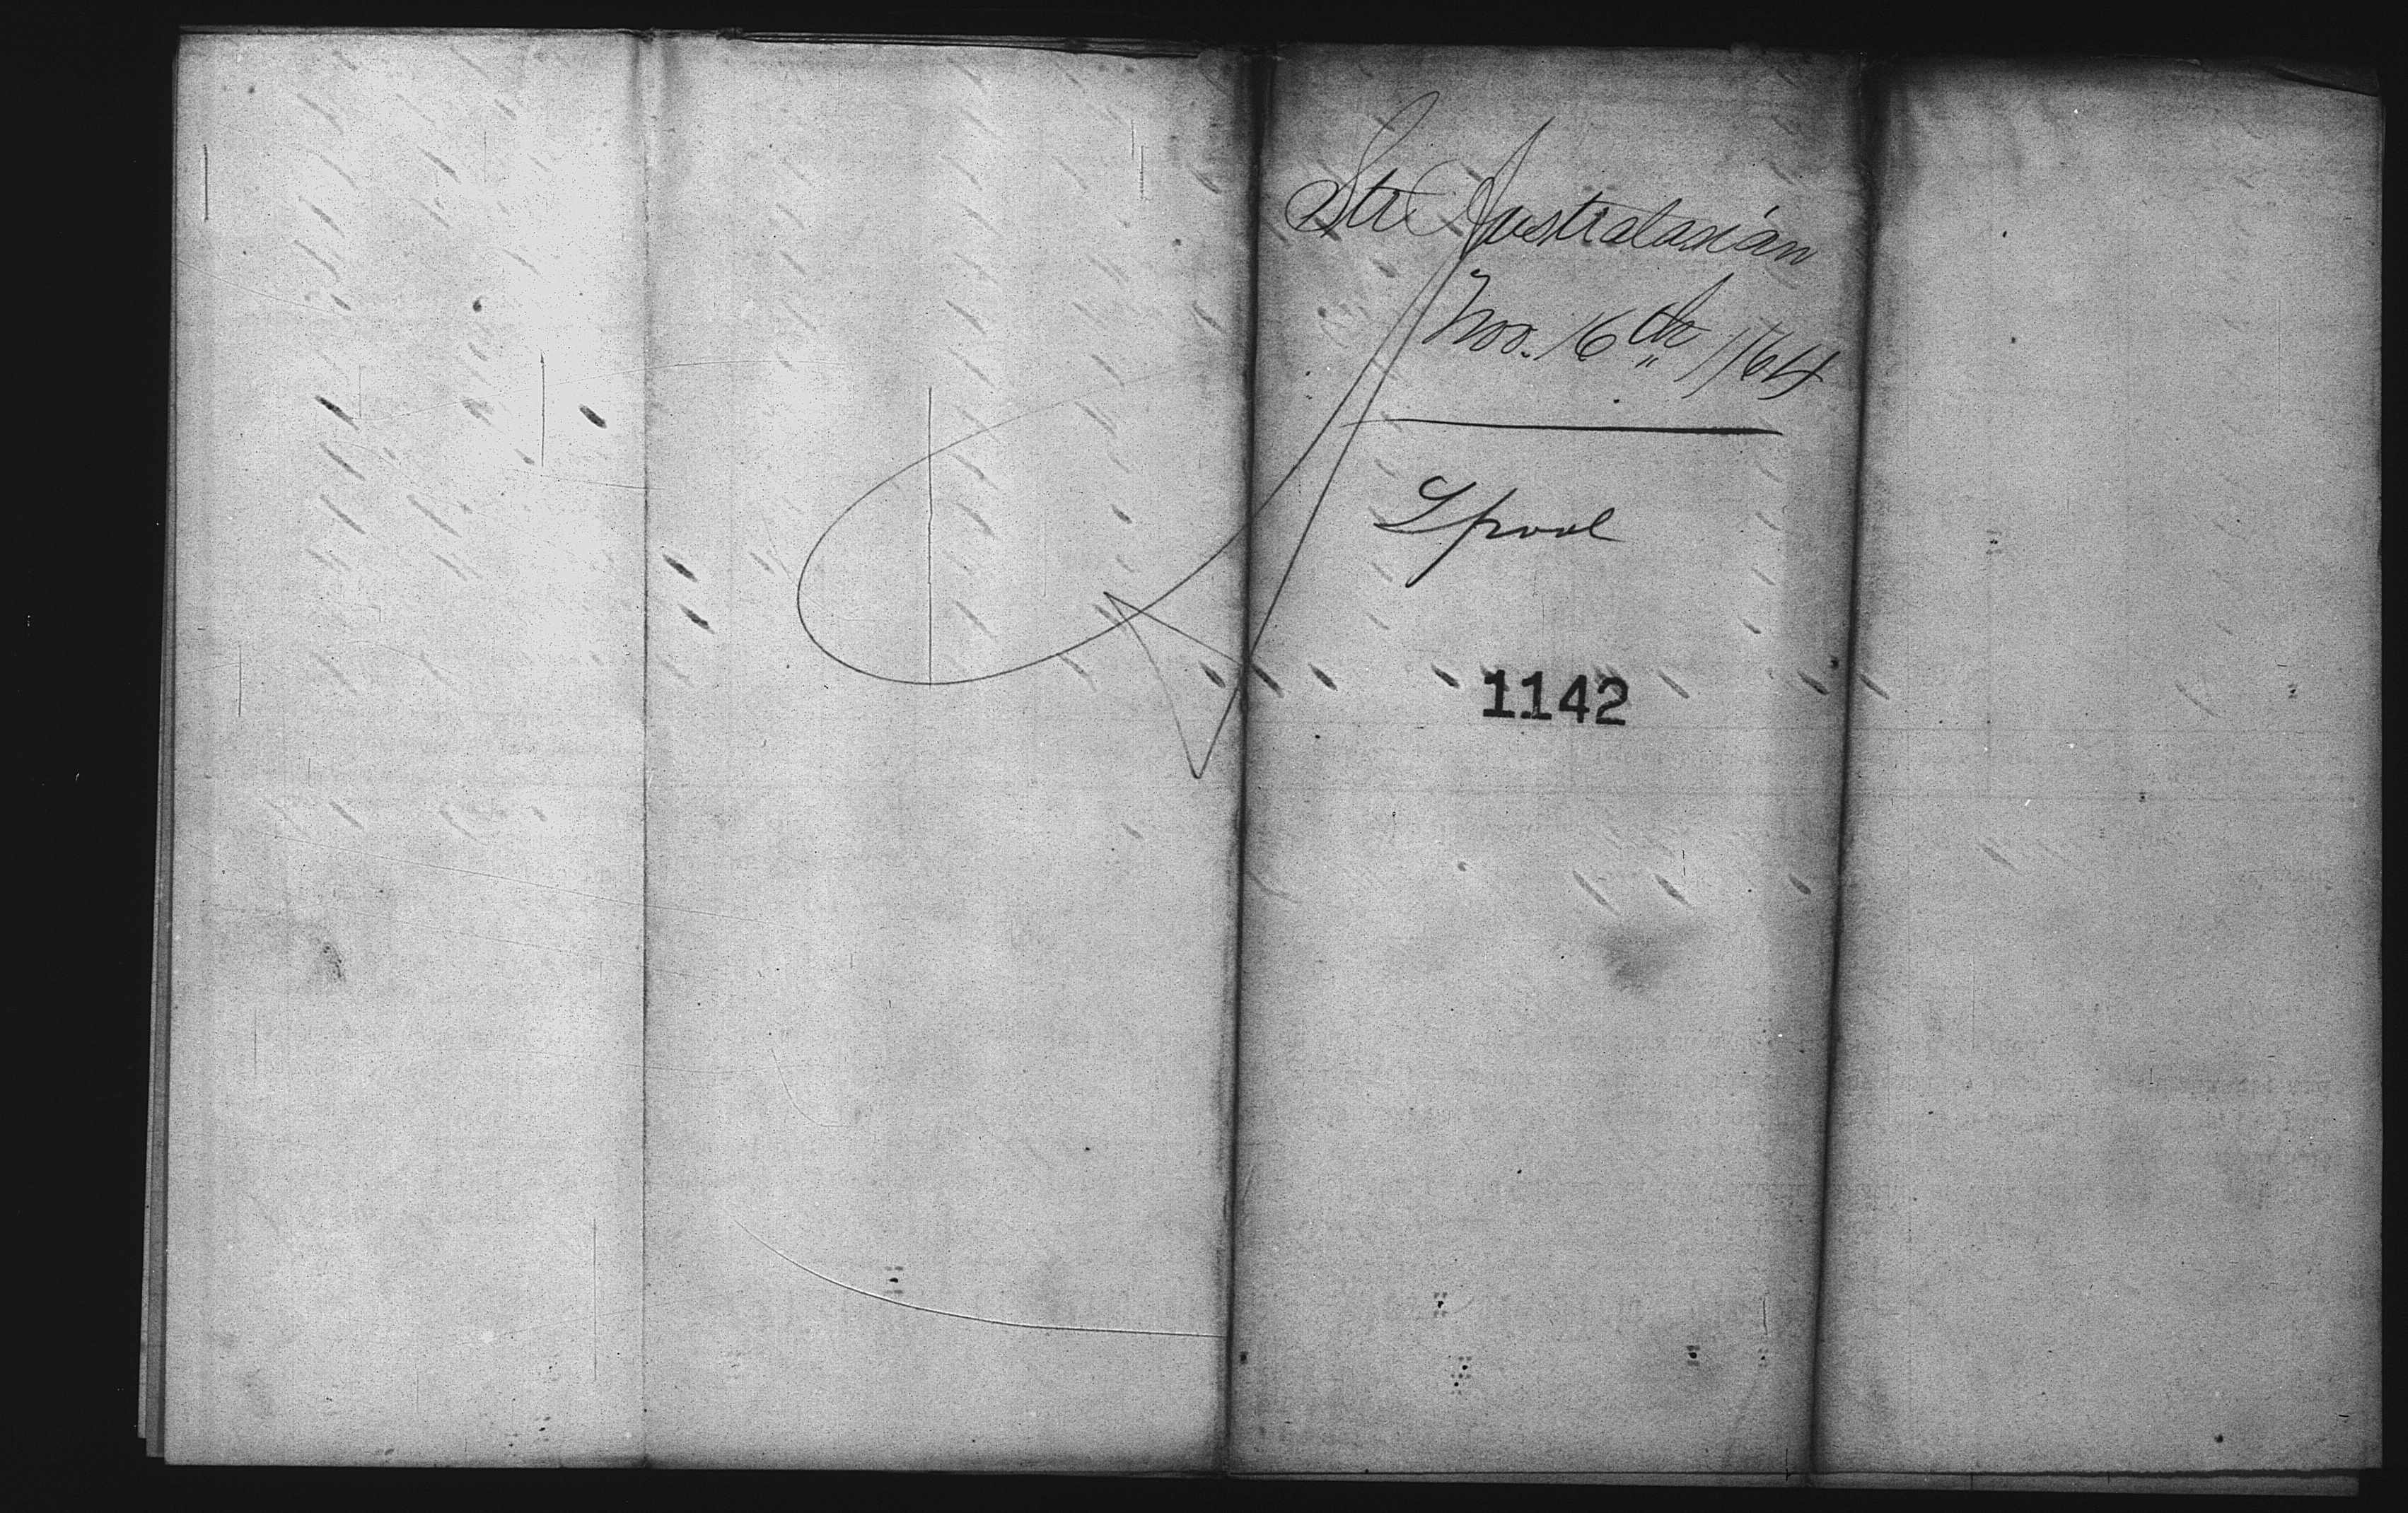 Str Australasian
Nov. 16th /64
Lpool
1142